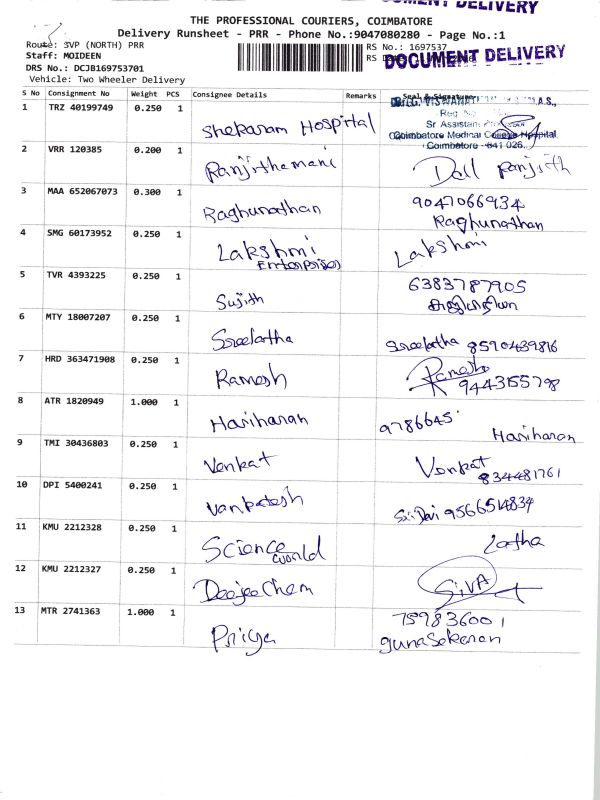 DOCUMENT DELIVERY
THE PROFESSIONAL COURIERS, COIMBATORE
Delivery Runsheet - PRR - Phone No.:9047080280 - Page No.:1
Route: SVP (NORTH) PRR
RS No.: 1697537
Staff: MOIDEEN
RS
DOCUMENT DELIVERY
DRS No.: DCJB169753701
Vehicle: Two Wheeler Delivery
S No Consignment No Weight PCS Consignee Details Remarks Seal & Signature
1 TRZ 40199749 0.250 1 Shekaram Hospital
Reg No
Sr Assistant
Coimbatore Medical College Hospital
Coimbatore - 641 026.
2 VRR 120385 0.200 1 Ranjithamani Ranjith
3 MAA 652067073 0.300 1 Raghunathan 9047066934
Raghunathan
4 SMG 60173952 0.250 1 Lakshmi Lakshmi
Enterprises
5 TVR 4393225 0.250 1 Sujith 6383787905
6 MTY 18007207 0.250 1 Sreelatha Sreelatha 8590439816
7 HRD 363471908 0.250 1 Ramesh Ramesh
9443155798
8 ATR 1820949 1.000 1 Hariharan 9786645
Hariharan
9 TMI 30436803 0.250 1 Venkat Venkat
834481761
10 DPI 5400241 0.250 1 Vankatesh Sri Devi 9566514834
11 KMU 2212328 0.250 1 Science World Latha
12 KMU 2212327 0.250 1 Deejee Chem SIVA
13 MTR 2741363 1.000 1 Priya 759836001
gunasekaran